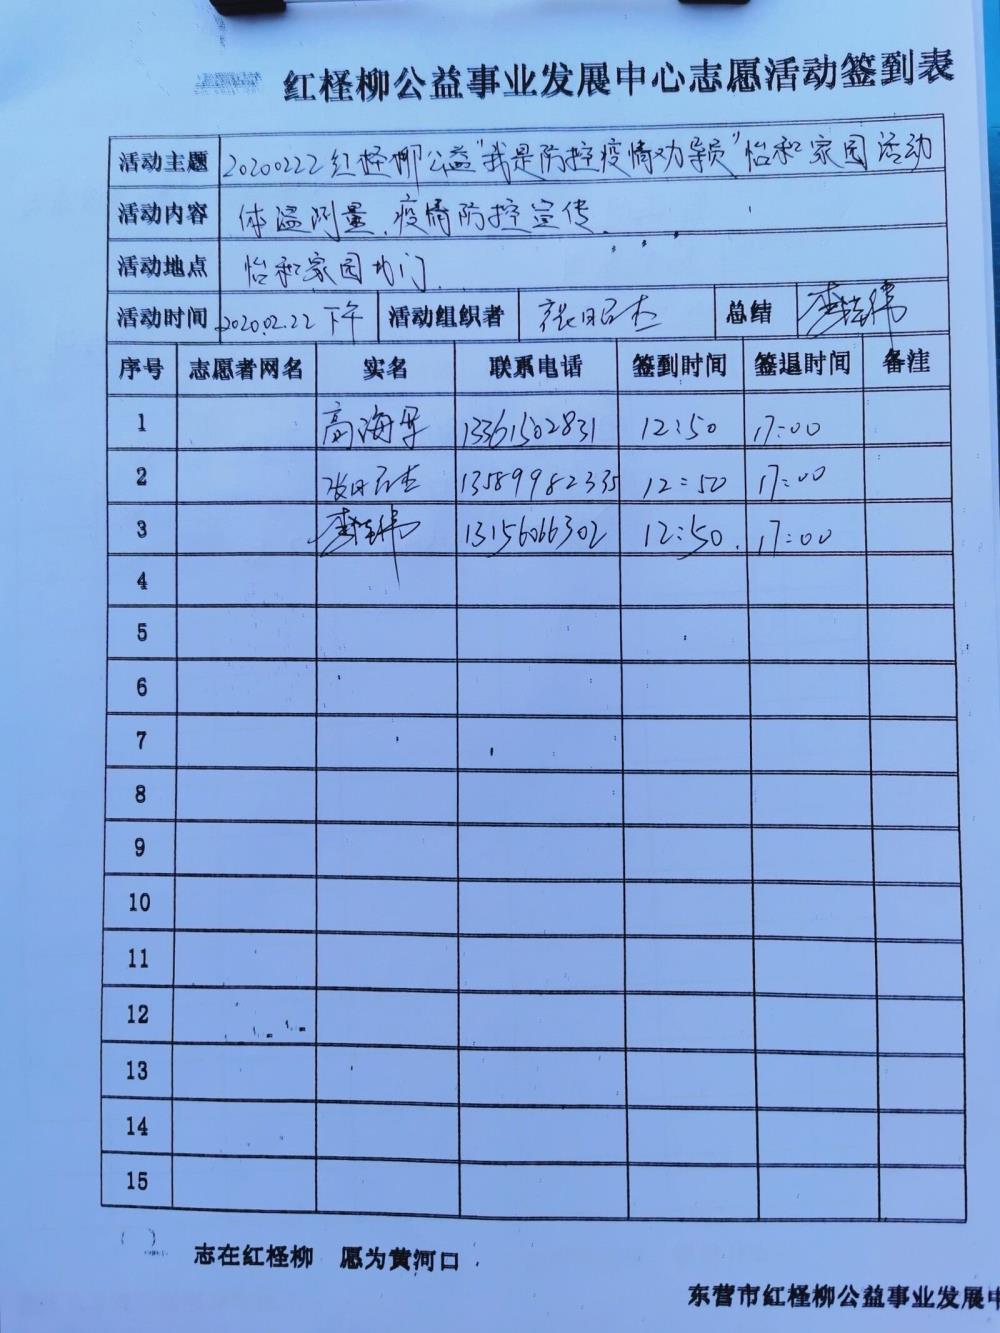 红柽柳公益事业发展中心志愿活动签到表
活动主题 20200222红柽柳公益"我是防控疫情劝导员"怡和家园活动
活动内容 体温测量、疫情防控宣传.
活动地点 怡和家园 门
活动时间 2020.02.22下午 活动组织者 张明杰 总结
序号 志愿者网名 实名 联系电话 签到时间 签退时间 备注
1 高海军 13361502831 12:50 17:00
2 张明杰 13589982335 12:50 17:00
3 13156066302 12:50 17:00
4
5
6
7
8
9
10
11
12
13
14
15
志在红柽柳 愿为黄河口
东营市红柽柳公益事业发展中